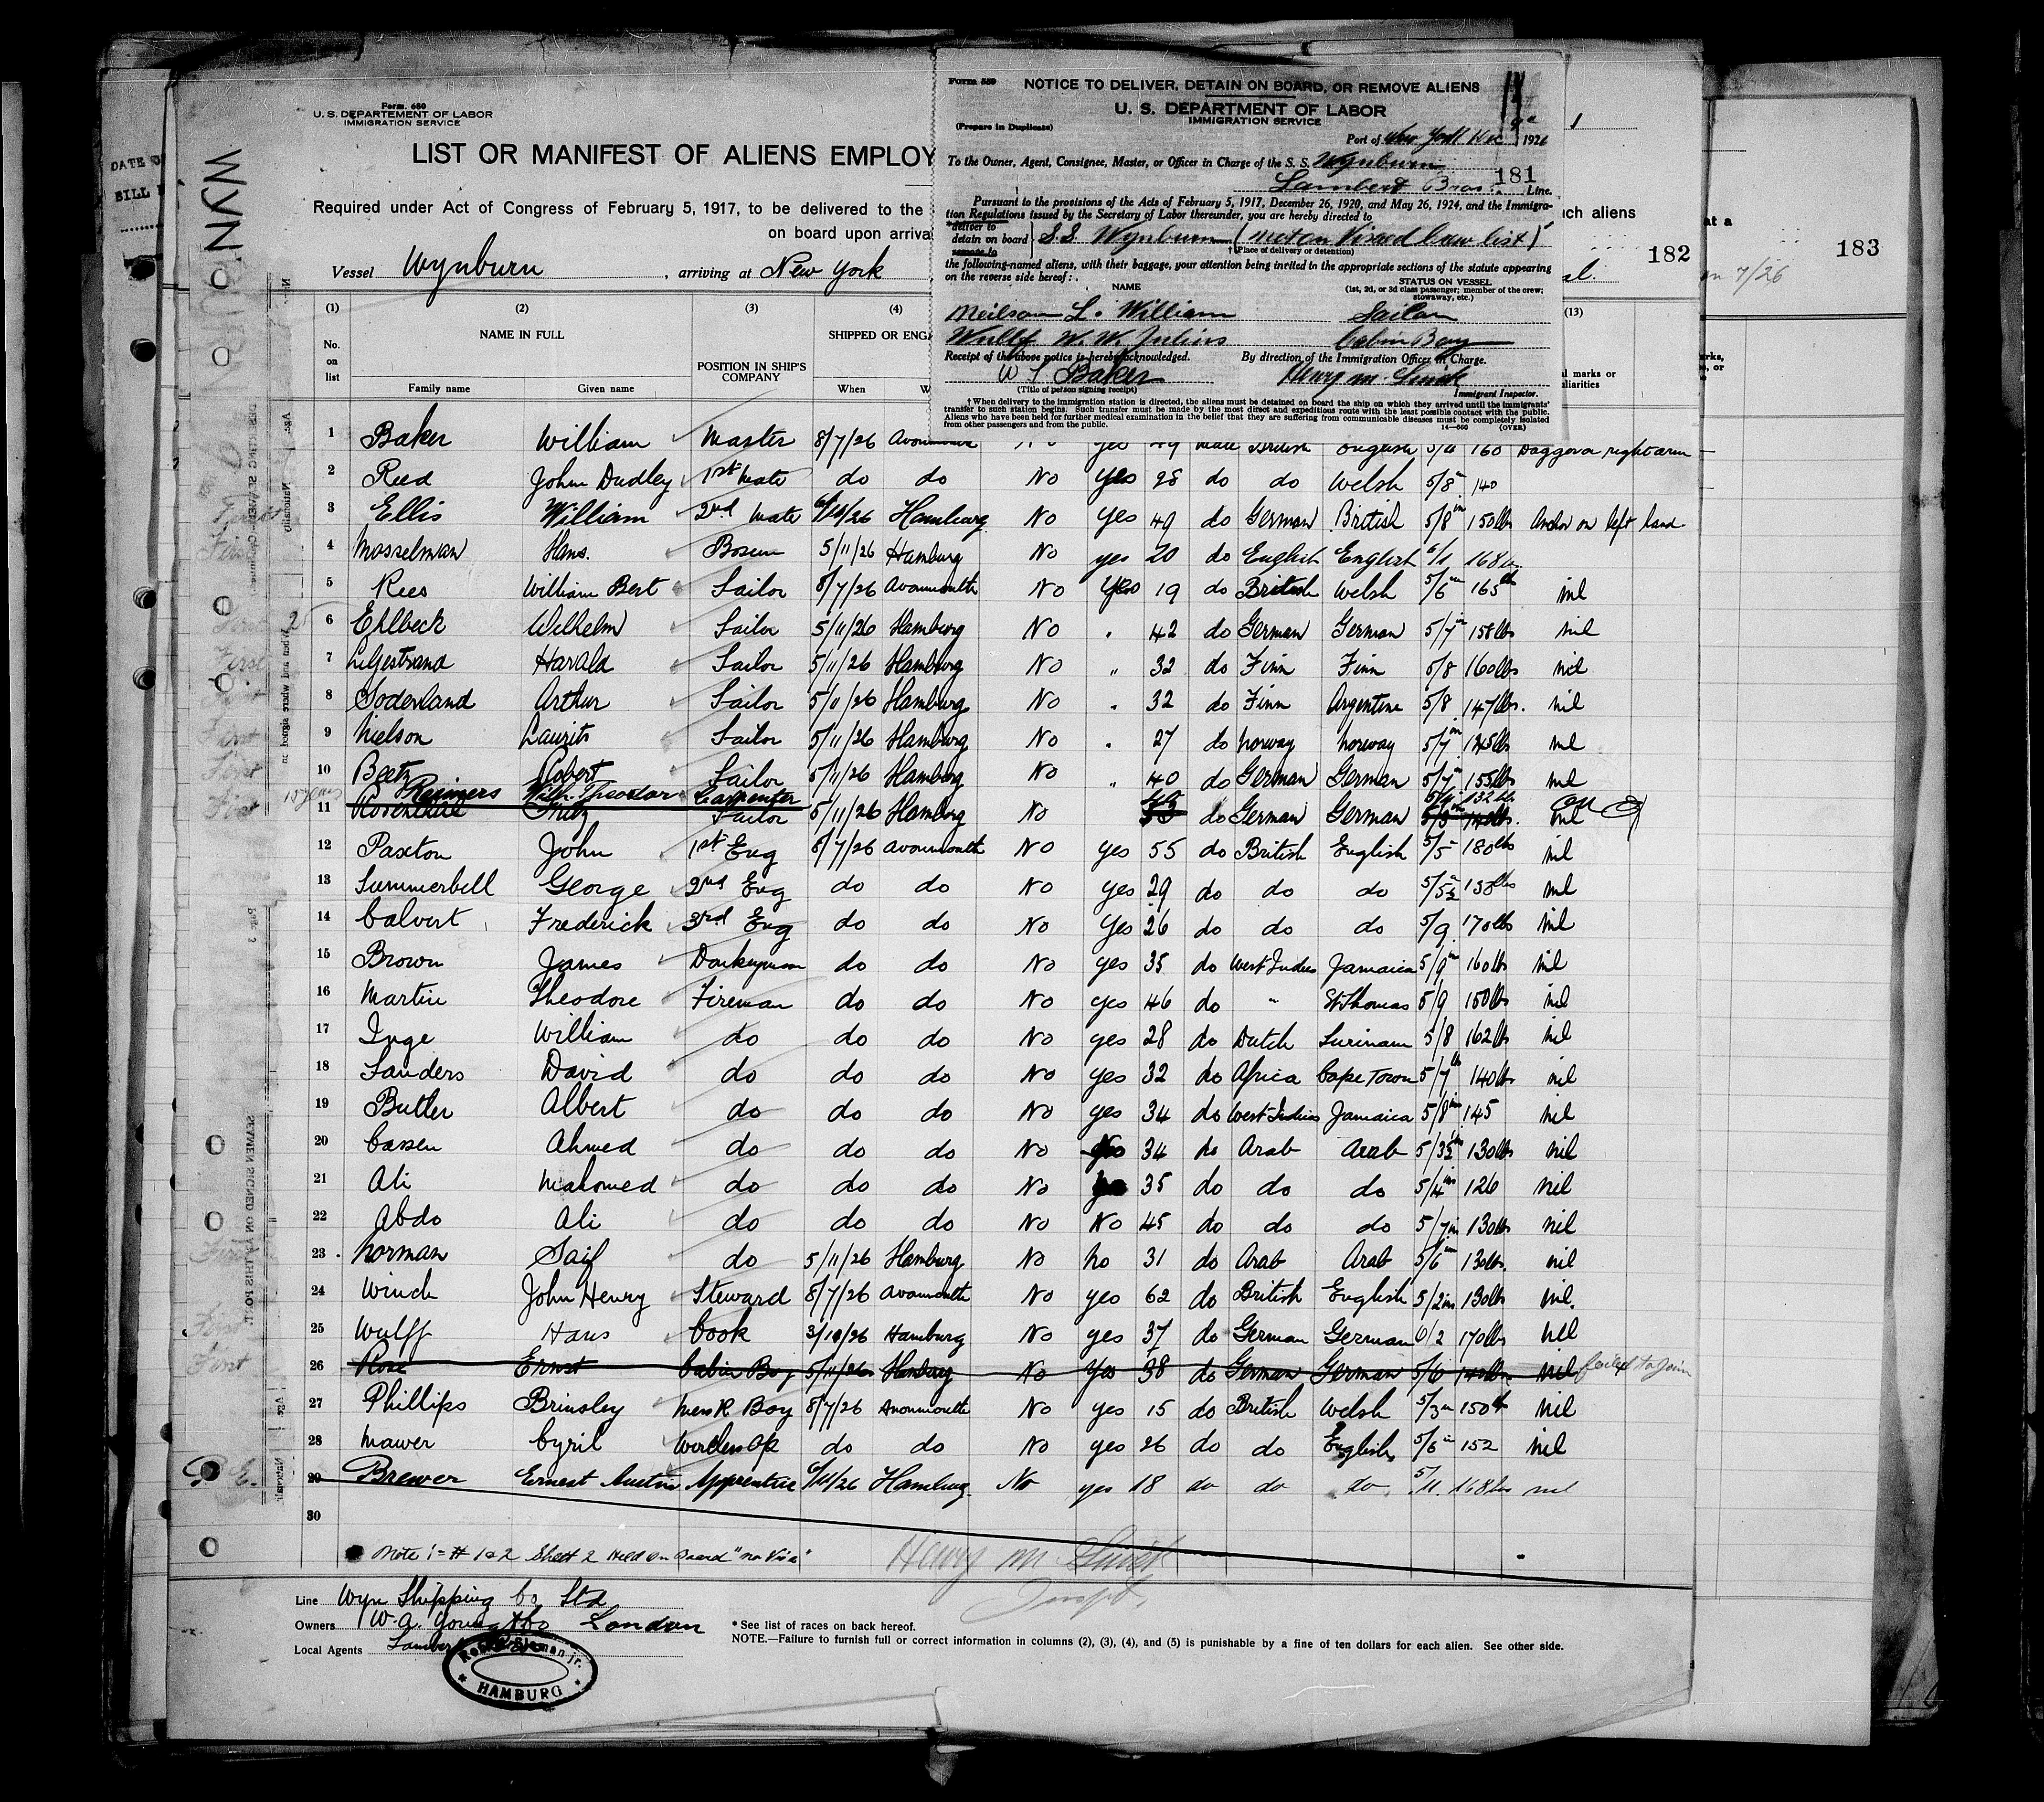 Form. 680
U. S. DEPARTEMENT OF LABOR
IMMIGRATION SERVICE
LIST OR MANIFEST OF ALIENS EMPLOY
Required under Act of Congress of February 5, 1917, to be delivered to the
on board upon arriva
Vessel Wynburn , arriving at New York
(1) (2) (3) (4)
No. on list NAME IN FULL POSITION IN SHIP'S COMPANY SHIPPED OR ENGA
Family name Given name When W
Form 559 NOTICE TO DELIVER, DETAIN ON BOARD, OR REMOVE ALIENS
U. S. DEPARTMENT OF LABOR
IMMIGRATION SERVICE
(Prepare in Duplicate)
Port of New York 1926
To the Owner, Agent, Consignee, Master, or Officer in Charge of the S. S. Wynburn
181
Lambert Bros. Line.
Pursuant to the provisions of the Acts of February 5, 1917, December 26, 1920, and May 26, 1924, and the Immigra-
tion Regulations issued by the Secretary of Labor thereunder, you are hereby directed to
*deliver to
detain on board S.S. Wynburn (not on Visaed Crew list)
remove to
†(Place of delivery or detention)
the following-named aliens, with their baggage, your attention being invited in the appropriate sections of the statute appearing
on the reverse side hereof:
NAME STATUS ON VESSEL
(1st, 2d, or 3d class passenger; member of the crew;
stowaway, etc.)
Neilson L. William Sailor
Wulff W. W. Julius Cabin Boy
Receipt of the above notice is hereby acknowledged. By direction of the Immigration Officer in Charge.
W Baker Henry M.
(Title of person signing receipt) Immigrant Inspector.
†When delivery to the immigration station is directed, the aliens must be detained on board the ship on which they arrived until the immigrants'
transfer to such station begins. Such transfer must be made by the most direct and expeditious route with the least possible contact with the public.
Aliens who have been held for further medical examination in the belief that they are suffering from communicable diseases must be completely isolated
from other passengers and from the public.
14—660 (OVER)
uch aliens
182
al.
(13)
l marks or
liarities
at a
183
7/26
rks,
, or
DATE
BILL
WYNBURN
1 Baker William Master 8/7/26 Avonmouth No Yes 49 male British English 5/4 160 Dagger on right arm
2 Reed John Dudley 1st Mate do do No Yes 28 do do Welsh 5/8 140
3 Ellis William 2nd Mate Hamburg No Yes 49 do German British 5/8 150lbs Anchor on left hand
4 Mosselman Hans. Bosun 5/11/26 Hamburg No yes 20 do English English 6/1 168
5 Rees William Bert Sailor 8/7/26 Avonmouth No Yes 19 do British Welsh 5/6 165lb nil
6 Ehlbeck Wilhelm Sailor 5/11/26 Hamburg No " 42 do German German 5/7 158lbs nil
7 Harald Sailor 5/11/26 Hamburg No " 32 do Finn Finn 5/8 160lbs nil
8 Soderland Arthur Sailor 5/11/26 Hamburg No " 32 do Finn Argentine 5/8 147lbs. nil
9 Nielson Laurits Sailor 5/11/26 Hamburg No " 27 do Norway Norway 5/7 145lbs nil
10 Beetz Robert Sailor 5/11/26 Hamburg No " 40 do German German 5/7 155lbs nil
Reimers Wilh. Theodor Carpenter 132 lbs
11 Rosenthal Fritz Sailor 5/11/26 Hamburg No do German German 5/5 140lbs. nil
12 Paxton John 1st Eng 8/7/26 Avonmouth No yes 55 do British English 5/5 180lbs nil
13 Summerbell George 2nd Eng do do No yes 29 do do do 5/5½ 138lbs nil
14 Calvert Frederick 3rd Eng do do No Yes 26 do do do 5/9 170lbs nil
15 Brown James Donkeyman do do No yes 35 do West Indies Jamaica 5/9 160lbs nil
16 Martin Theodore Fireman do do No yes 46 do " St Thomas 5/9 150lbs nil
17 Inge William do do do No yes 28 do Dutch Surinam 5/8 162lbs nil
18 Sanders David do do do No Yes 32 do Africa Cape Town 5/7 140lbs nil
19 Butler Albert do do do No yes 34 do West Indies Jamaica 5/8 145 nil
20 Cassen Ahmed do do do No No 34 do Arab Arab 5/3½ 130lbs nil
21 Ali Mahomed do do do No 35 do do do 5/4 126 nil
22 Abdo Ali do do do No No 45 do do do 5/7in 130lbs nil
23 Norman Saif do 5/11/26 Hamburg No No 31 do Arab Arab 5/6 130lbs. nil
24 Winch John Henry Steward 8/7/26 Avonmouth No yes 62 do British English 5/2in 130lbs nil.
25 Wulff Hans Cook 3/10/26 Hamburg No yes 37 do German German 6/2 170lbs nil
26 Rose Ernst Cabin Boy 5/11/26 Hamburg No Yes 38 do German German 5/6 140lbs nil failed to join
27 Phillips Brinsley Mess R Boy 8/7/26 Avonmouth No yes 15 do British Welsh 5/3 150lb nil
28 Mawer Cyril Wireless Op do do No yes 26 do do English 5/6 152 nil
29 Brewer Ernest Austin Apprentice Hamburg. No yes 18 do do do 5/11 168lbs nil
30
Note:- # 1&2 Sheet 2 Held on Board "no Visa"
Henry M
Inspt.
Line Wyn Shipping Co Ltd
Owners W. A. Young & Co London
Local Agents Lambert
HAMBURG
* See list of races on back hereof.
NOTE.—Failure to furnish full or correct information in columns (2), (3), (4), and (5) is punishable by a fine of ten dollars for each alien. See other side.